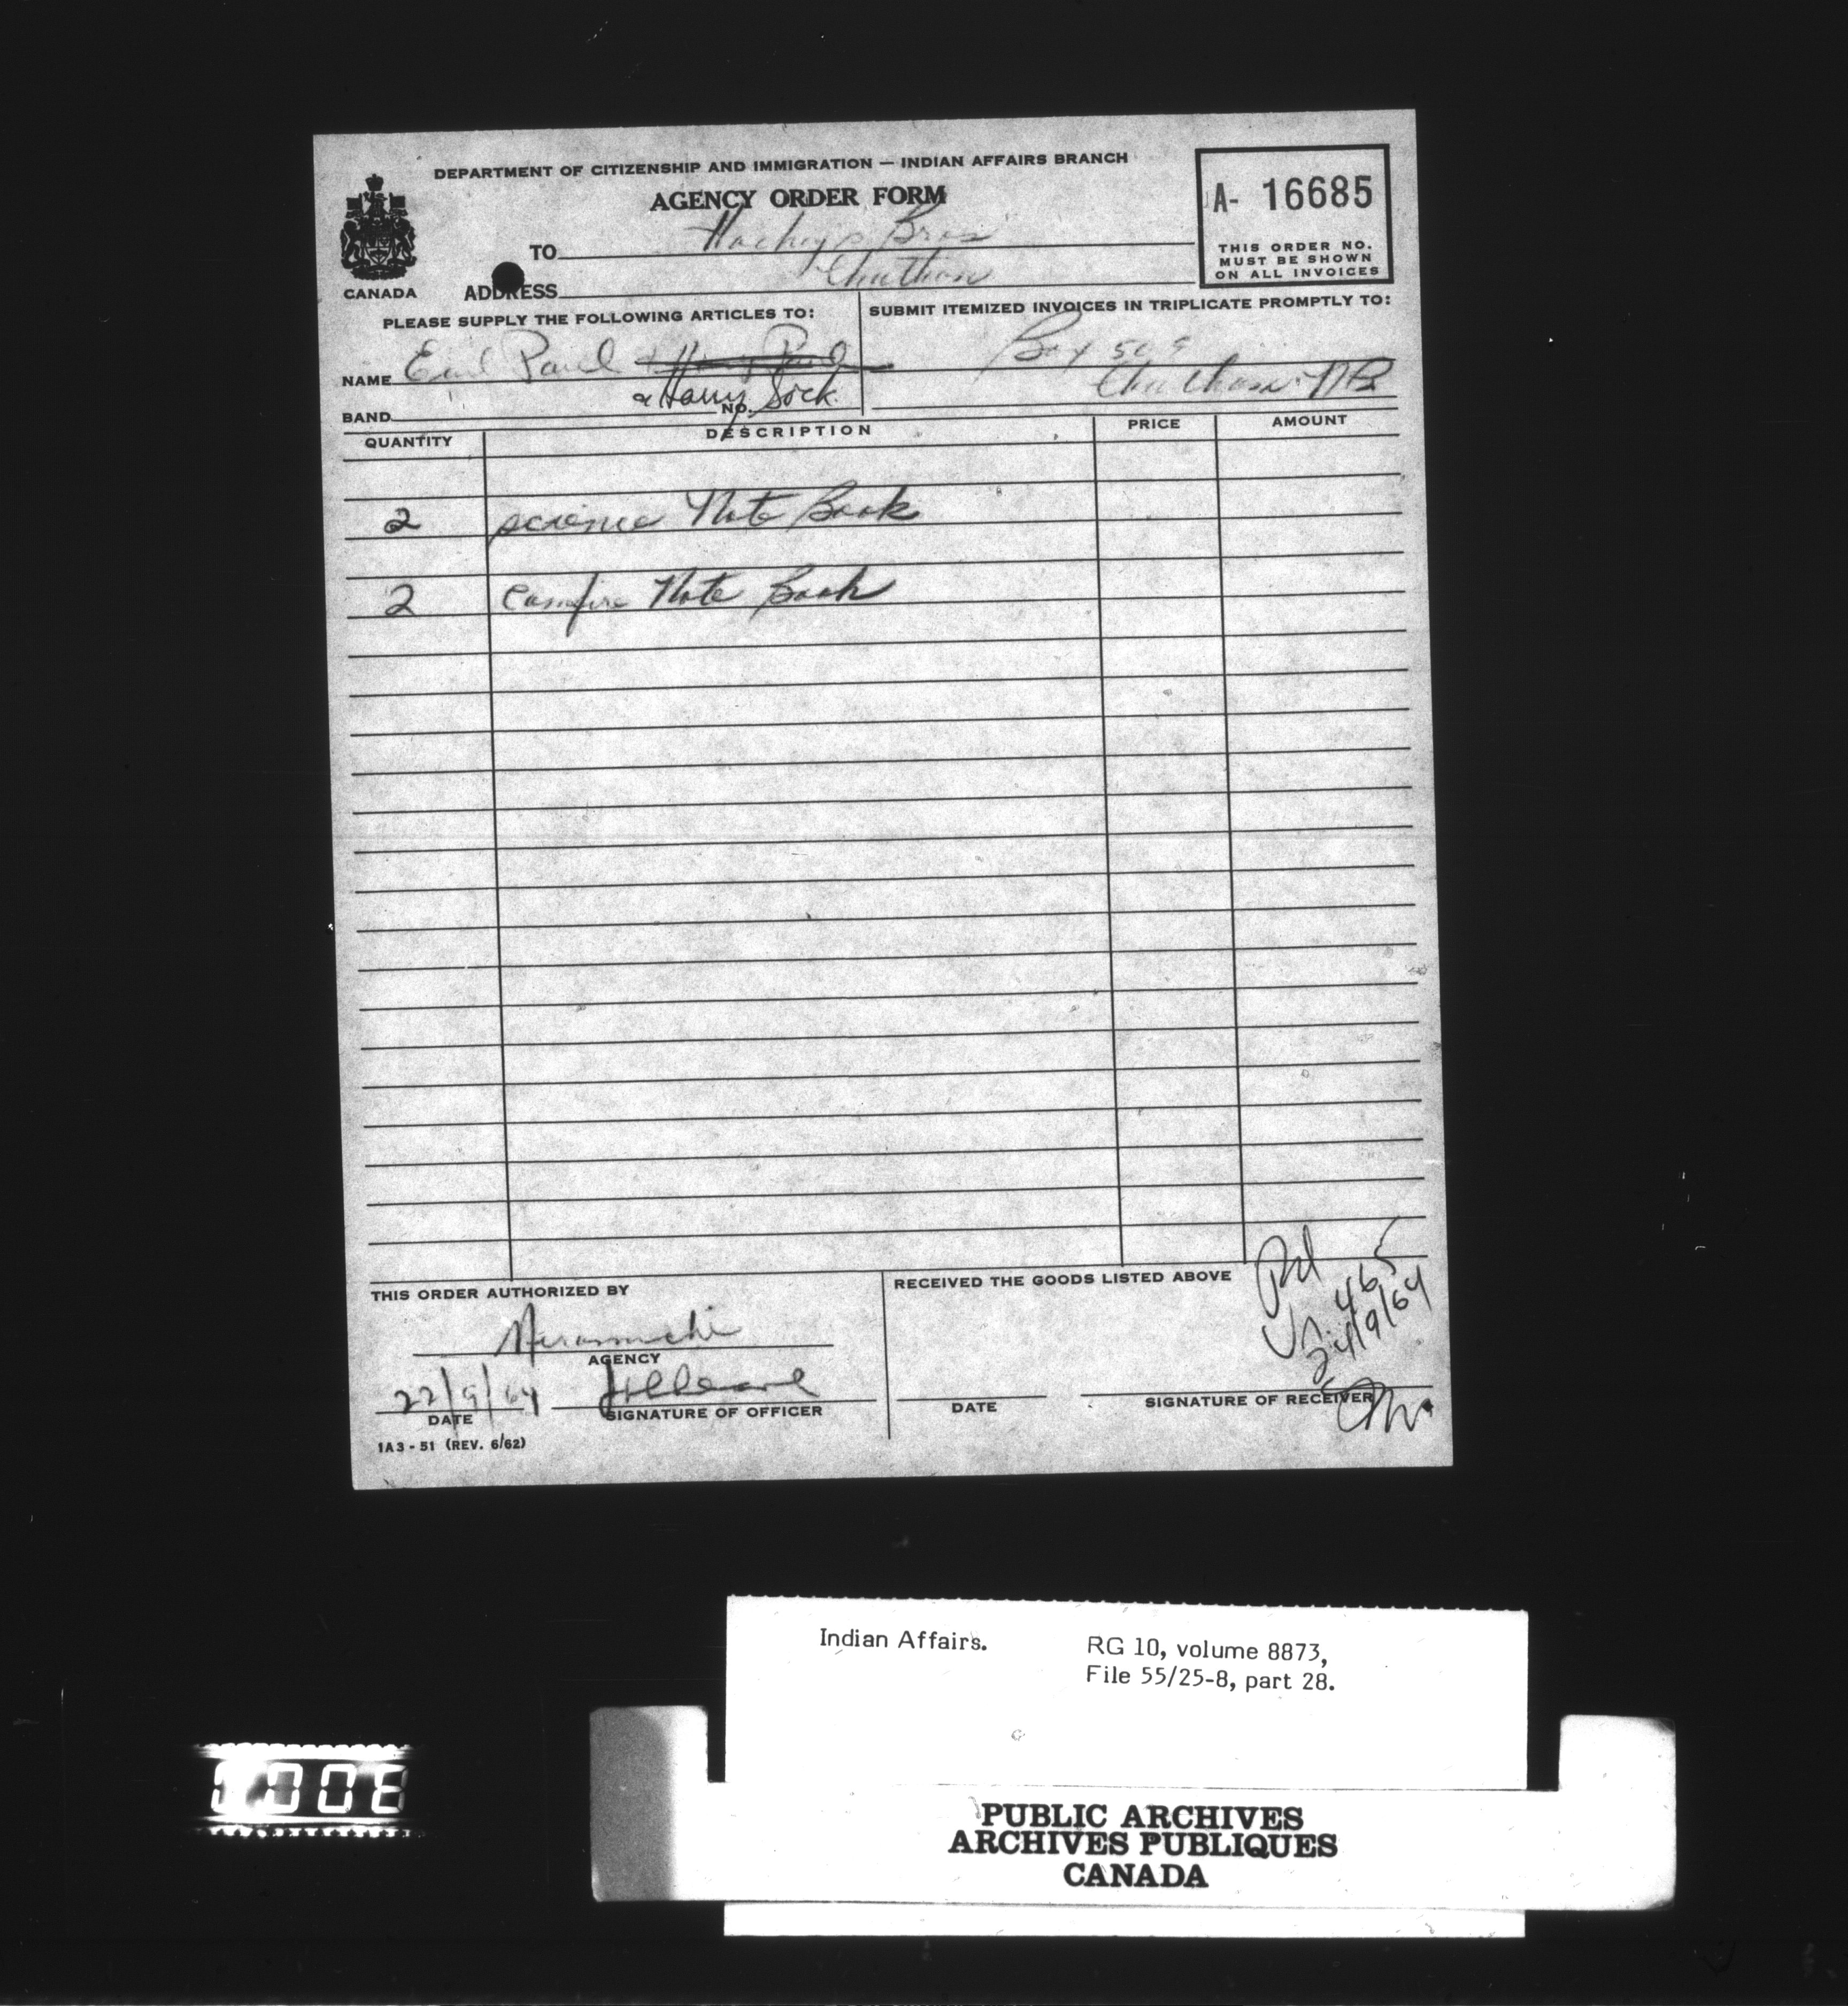 DEPARTMENT OF CITIZENSHIP AND IMMIGRATION — INDIAN AFFAIRS BRANCH
AGENCY ORDER FORM
A- 16685
THIS ORDER NO.
MUST BE SHOWN
ON ALL INVOICES
CANADA
TO Hachey's Bros
ADDRESS Chatham
PLEASE SUPPLY THE FOLLOWING ARTICLES TO:
SUBMIT ITEMIZED INVOICES IN TRIPLICATE PROMPTLY TO:
Box 509
NAME Paul & Harry Paul
Chatham NB
& Harry Sock
BAND NO.
QUANTITY DESCRIPTION PRICE AMOUNT
2 science Note Book
2 Note Book
THIS ORDER AUTHORIZED BY
RECEIVED THE GOODS LISTED ABOVE
Pd
465
24/9/64
Miramichi
AGENCY
22/9/64
DATE SIGNATURE OF OFFICER
DATE SIGNATURE OF RECEIVER
1A3-51 (REV. 6/62)
Indian Affairs. RG 10, volume 8873,
File 55/25-8, part 28.
PUBLIC ARCHIVES
ARCHIVES PUBLIQUES
CANADA